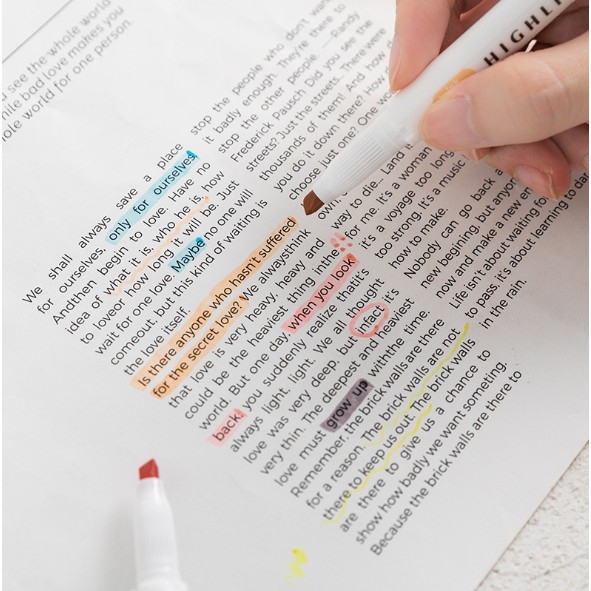 u see the whole world
hile bad love makes you
ole world for one person.
We shall always save a place
for ourselves, only for ourselves.
Andthen begin to love. Have no
idea of what it is, who he is, how
to loveor how long it will be. Just
wait for one love. Maybe no one will
comeout, but this kind of waiting is
the love itself.
Is there anyone who hasn't suffered
for the secret love? We alwaysthink
that love is very heavy, heavy and
could be the heaviest thing inthe
world. But one day, when you look
back, you suddenly realize thatit's
always light, light. We all thought
love was very deep, but infact it's
very thin. The deepest and heaviest
love must grow up withthe time.
Remember, the brick walls are there
for a reason. The brick walls are not
there to keep us out. The brick walls
are there to give us a chance to
show how badly we want something.
Because the brick walls are there to
stop the people who don't want
it badly enough. They're there to
stop the other people. —Randy
Frederick Pausch Did you see the
streets?Just the streets. There were
thousands of them! And how do
you do it down there? How
choose just one? One
own
way to die. Land i
for me. It's a woman
It's a voyage too long
too strong. It's a music
how to make.
Nobody can go back a
new begining, but anyone
now and make a new en
Life isn't about waiting fo
to pass, it's about learning to dan
in the rain.
HIGHLI